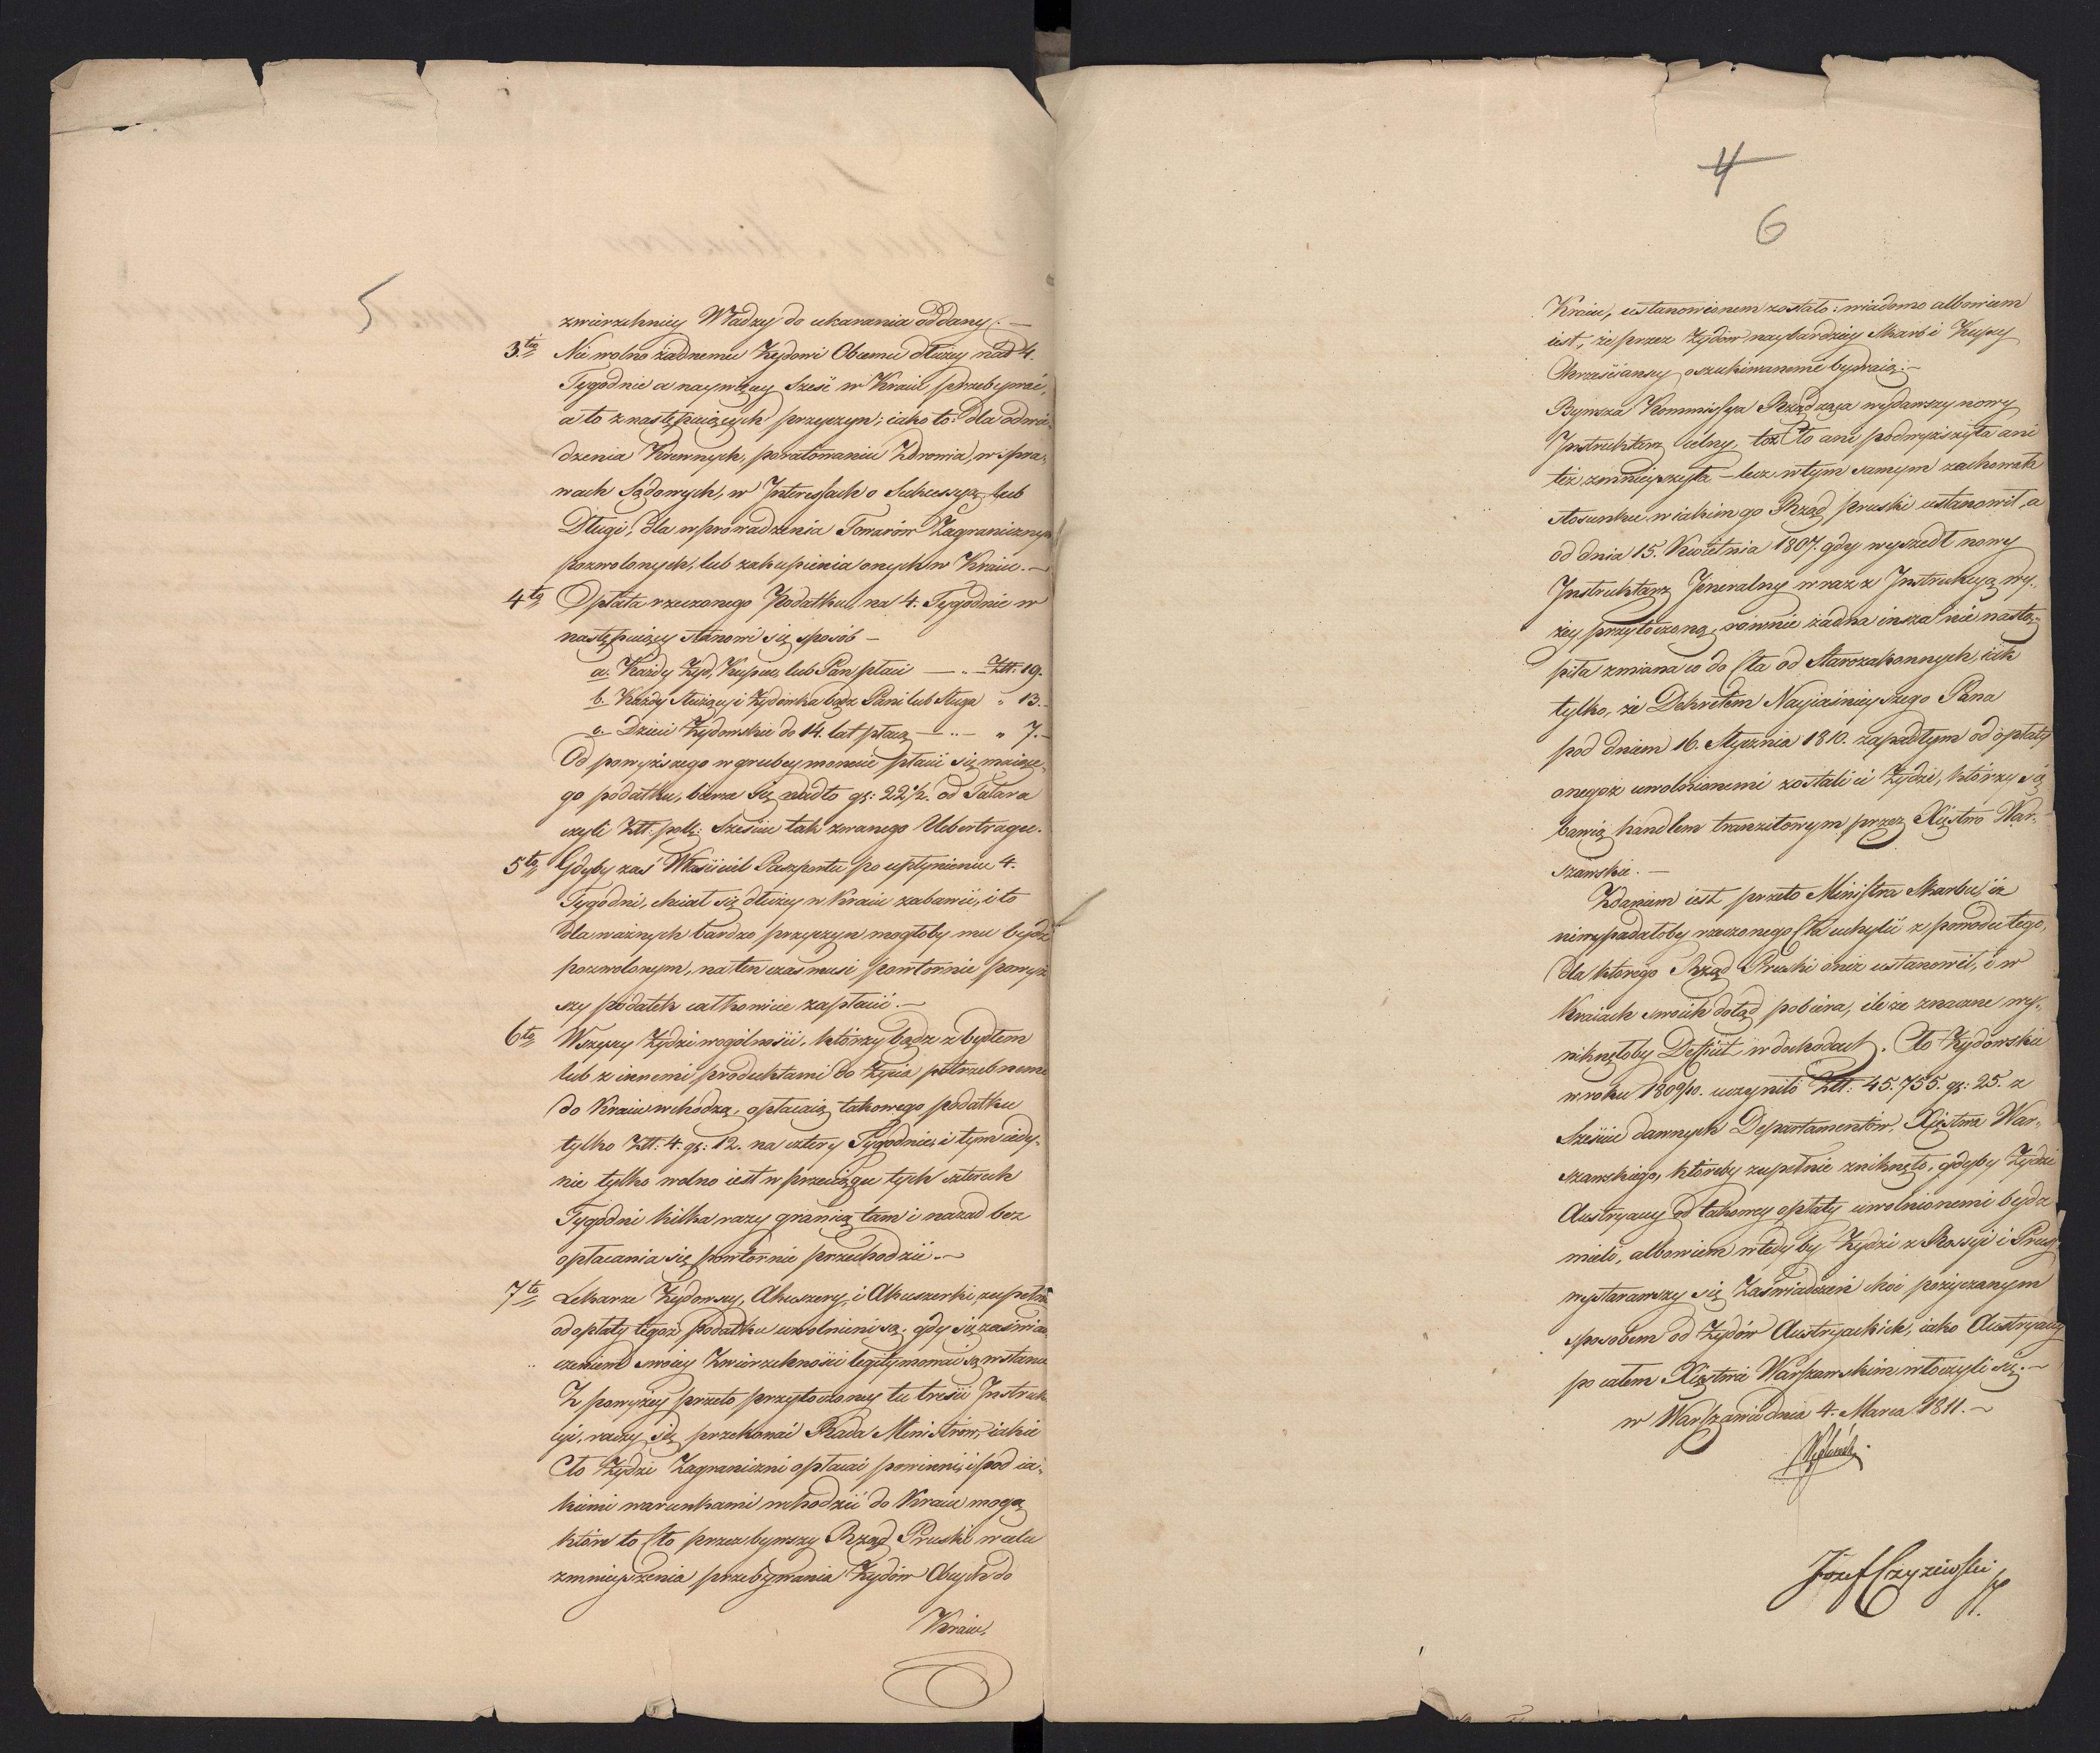 5
zwierzchniey Władzy do ukarania oddany. —
3tio Nie wolno żadnemu Żydowi Obcemu dłużey nad 4.
Tygodnie a naywięcey Sześć w Kraiu przebywać,
a to z następuiących przyczyn; iako to: dla odwie-
dzenia Krewnych, poratowania Zdrowia, w spra-
wach Sądowych, w Interessach o Sukcessyą lub
Długi, dla wprowadzenia Towarów Zagranicznych
pozwolonych, lub zakupienia onych w Kraiu. —
4to Opłata rzeczonego Podatku, na 4. Tygodnie w
następuiący stanowi się sposób —
a. Każdy Żyd, Kupiec, lub Pan płaci — „ — Złł: 19.
b. Każdy Służący i Żydówka bądz Pani lub Sługa „ 13. —
c. Dzieci Żydowskie do 14. lat płacą — „ — „ 7. —
Od powyższego w grubey monecie płacić się maiące-
go podatku, bierze się nadto gr: 22½. od Talara
czyli Złł: pols: Sześciu tak zwanego Uebertragu.
5to Gdyby zaś Właściciel Paszportu po upłynieniu 4.
Tygodni, chciał się dłużey w Kraiu zabawić, i to
dla ważnych bardzo przyczyn mogłoby mu bydź
pozwolonym, na ten czas musi powtórnie powyż-
szy podatek całkowicie zapłacić. —
6to Wszyscy Żydzi w ogólności, którzy bądz z bydłem
lub z innemi produktami do Życia potrzebnemi
do Kraiu wchodzą, opłacaią takowego podatku
tylko Złł: 4. gr: 12. na cztery Tygodnie, i tym iedy-
nie tylko wolno iest w przeciągu tych czterech
Tygodni kilka razy granicą tam i nazad bez
opłacania się powtórnie przechodzić. —
7to Lekarze Żydowscy, Akuszery, i Akuszerki, zupełnie
od opłaty tegoż podatku uwolnieni są, gdy się zaświad-
czeniami swoiey Zwierzchności legitymować są w stanie
Z powyżey przeto przytoczoney tu treści Instruk-
cyi, raczy się przekonać Rada Ministrów, iakie
Cło Żydzi Zagraniczni opłacać powinni, i pod ia-
kiemi warunkami wchodzić do Kraiu mogą
które to Cło przez bywszy Rząd Pruski w celu
zmnieyszenia przebywania Żydów Obcych do
Kraiu,
4
6
Kraiu, ustanowionem zostało: wiadomo albowiem
iest, że przez Żydów naybardziey Skarb i Kupcy
Chrześcianscy oszukiwanemi bywaią. —
Bywsza Kommissya Rządząca wydawszy nowy
Instruktarz celny, toż Cło ani podwyższyła ani
też zmnieyszyła — lecz w tym samym zachowała
stosunku w iakim go Rząd pruski ustanowił, a
od dnia 15. Kwietnia 1807. gdy wyszedł nowy
Instruktarz Jeneralny wraz z Instrukcyą wy-
żey przytoczoną, równie żadna insza nie nastą-
piła zmiana co do Cła od Starozakonnych, iak
tylko, że Dekretem Nayiaśnieyszego Pana
pod dniem 16. Stycznia 1810. zapadłym od opłaty
onegoż uwolnionemi zostali ci Żydzi, którzy się
bawią handlem tranzitowym przez Xięstwo War-
szawskie. —
Zdaniem iest przeto Ministra Skarbu, iż
niewypadałoby rzeczonego Cła uchylić z powodu tego,
dla którego Rząd Pruski oneż ustanowił, i w
Kraiach swoich dotąd pobiera, ile że znaczne wy-
niknęłoby Deficit w dochodach. Cło Żydowskie
w roku 1809/10. uczyniło Złł: 45.755. gr: 25. z
Sześciu dawnych Departamentów, Xięstwa War-
szawskiego, któreby zupełnie zniknęło, gdyby Żydzi
Austryaccy od takowey opłaty uwolnionemi bydz
mieli, albowiem wtedy by Żydzi z Rossyi i Prus
wystarawszy się Zaświadczeń choć pożyczanym
sposobem od Żydów Austryackich, iako Austryaccy
po całem Xięstwie Warszawskim włóczyli się. —
w Warszawie dnia 4. Marca 1811. —
Józef Czyżewski